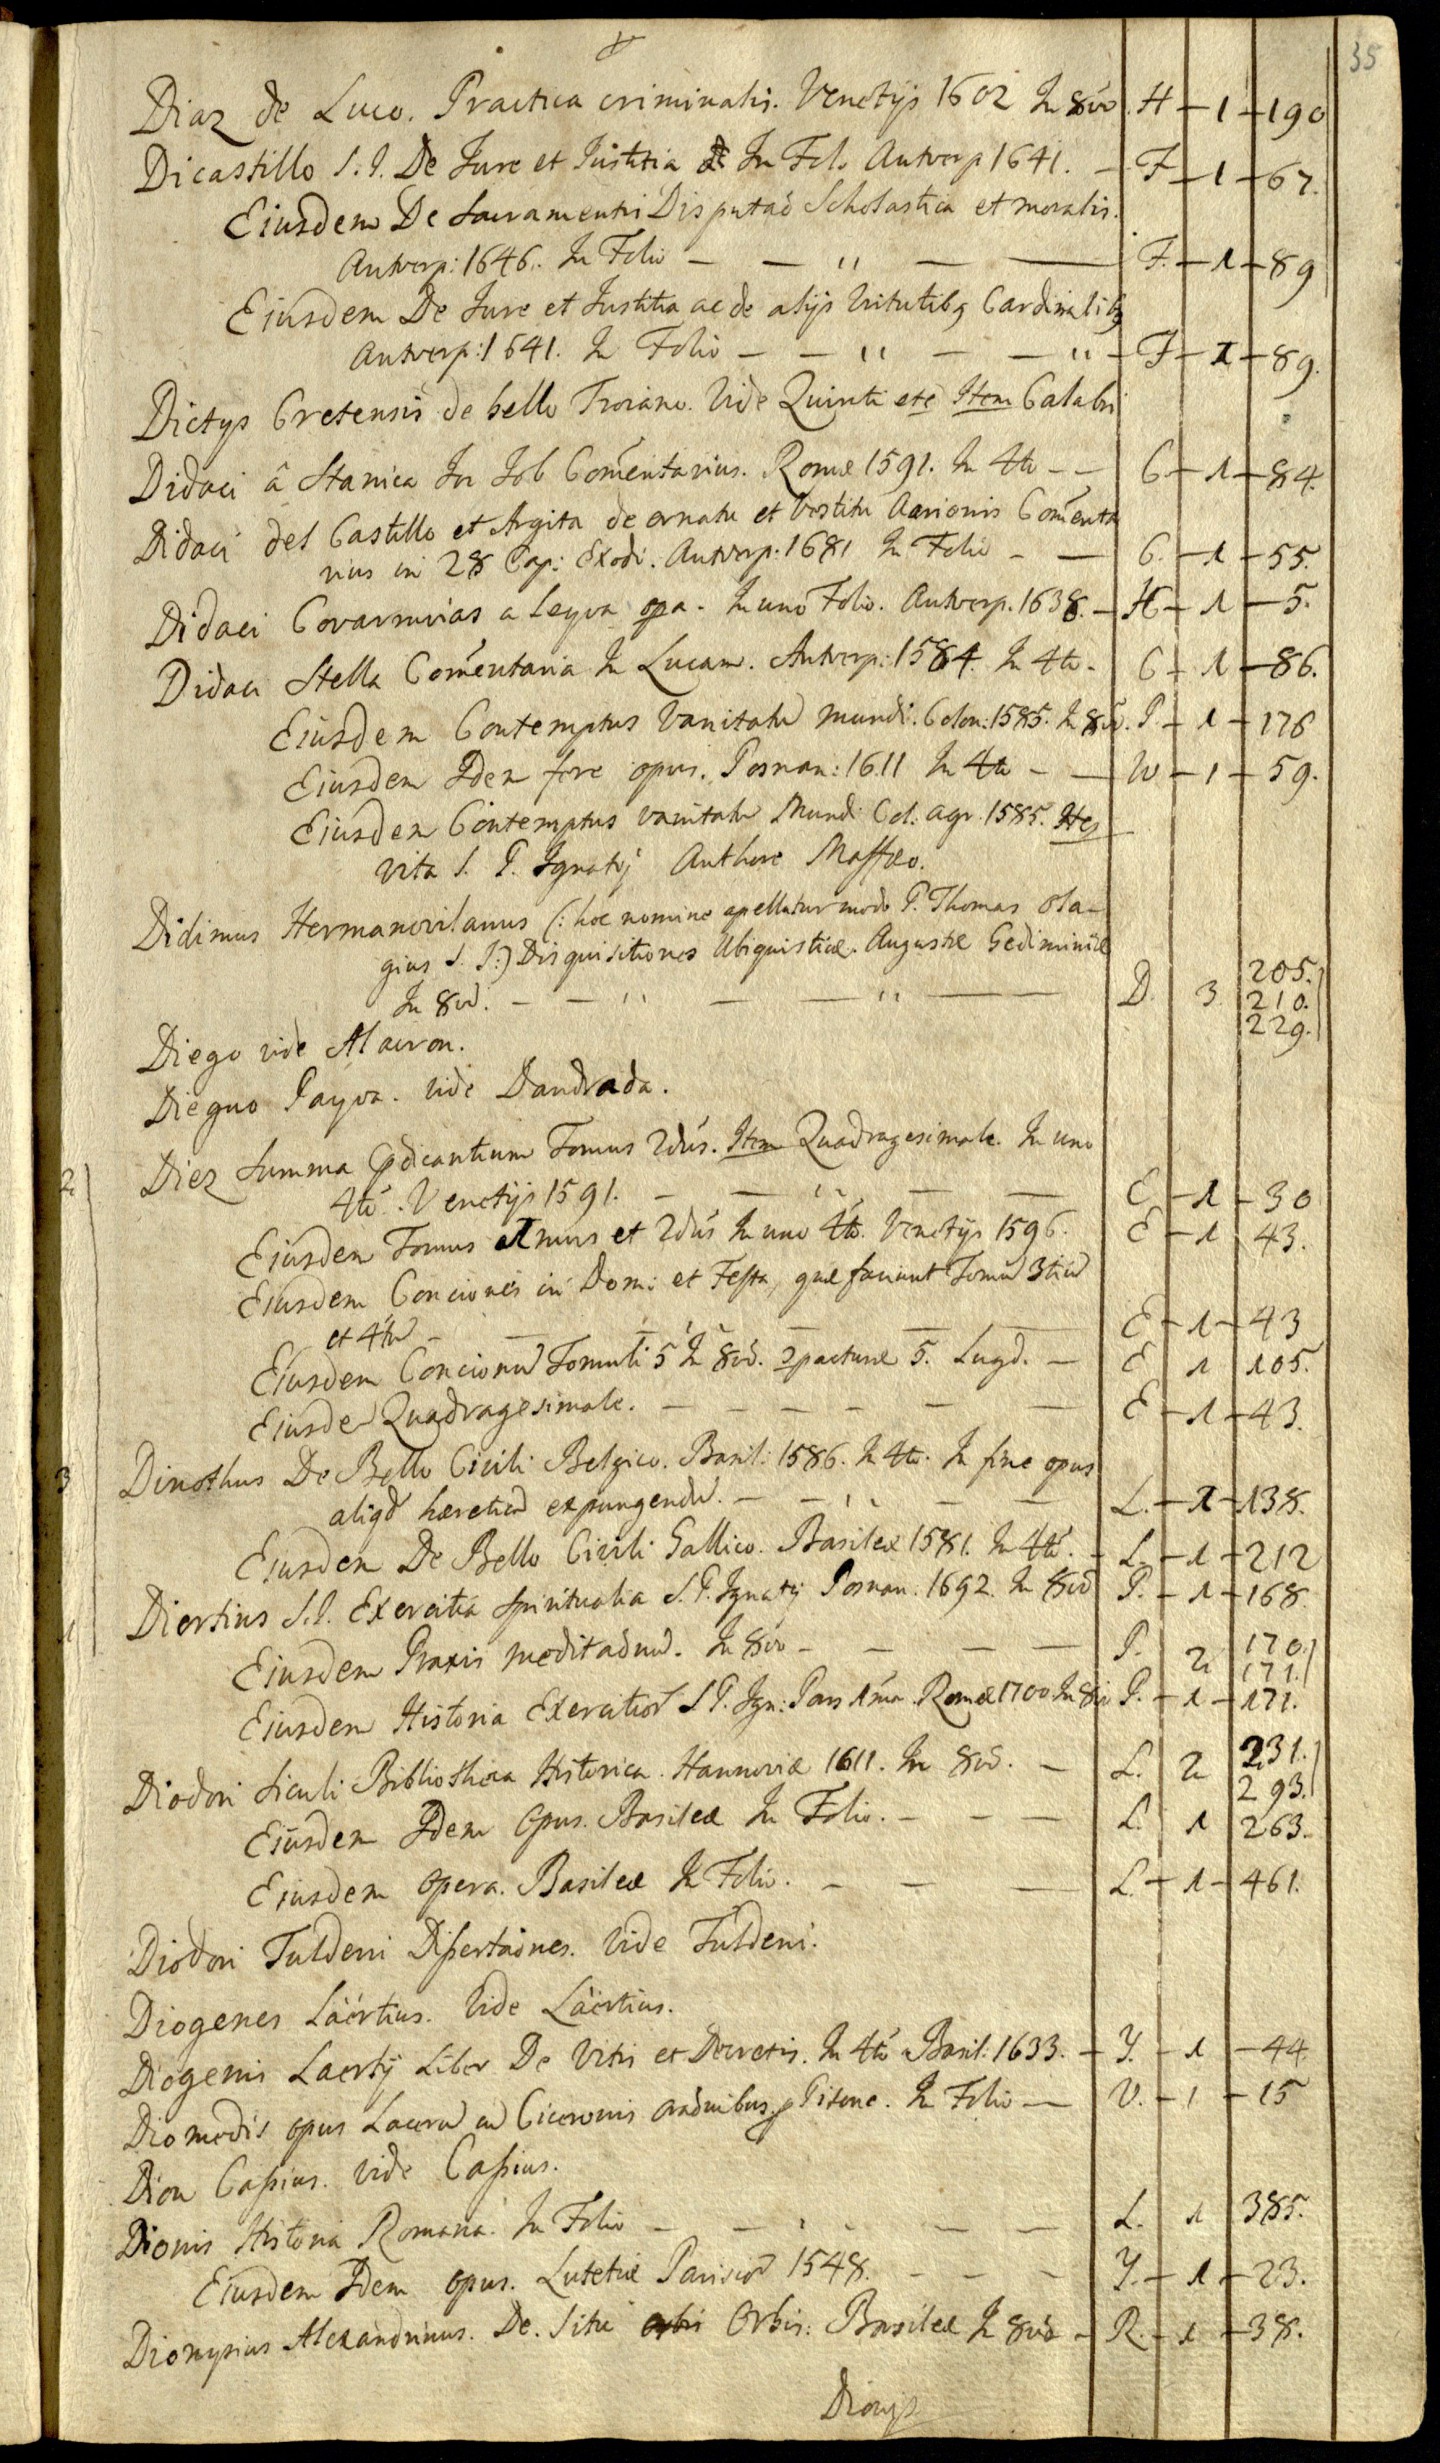 35
Diaz de Luco. Practica criminalis. Venetijs 1602 In 8vo. H - 1 - 190
Dicastillo S. I. De Jure et Justitia In Fol. Antverp 1641. - F - 1 - 67.
Eiusdem De Sacramentis Disputaõ Scholastica et moralis.
Antverp: 1646. In Folio - - " - - F. - 1 - 89
Eiusdem De Jure et Justitia ac de alijs Virtutibq Cardinalibq
Antverp: 1641. In Folio - - " - - " - F - 1 - 89.
Dictys Cretensis de bello Troiano. Vide Quinti etc Item Calabri
Didaci â Stanica In Job Com̃entarius. Romæ 1591. In 4to - - C - 1 - 84.
Didaci del Castillo et Argita de ornatu et Vestitu Aaronis Com̃enta
rius in 28 Cap: Exodi. Antverp: 1681 In Folio - - C. - 1 - 55.
Didaci Covarruvias a Leyva opa. In uno Folio. Antverp. 1638. - H - 1 - 5.
Didaci Stella Com̃entaria In Lucam. Antverp: 1584. In 4to - C - 1 - 86.
Eiusdem Contemptus Vanitatũ mundi. Colon: 1585. In 8vo. P. - 1 - 176
Eiusdem Idem fere opus. Posnan: 1611 In 4to - - W - 1 - 59.
Eiusdem Contemptus vanitatũ Mundi Col. agr. 1585. Itẽ
vita S. P. Ignatij Authore Maffæo.
Didimus Hermanovilanus (: hoc nomine apellatur modo P. Thomas Ela-
gius S. I:) Disquisitiones Ubiquisticæ. Augustæ Gediminiæ
In 8vo. - - " - - " - - D. 3 205.
210.
229.
Diego vide Alarcon.
Dieguo Payva. vide Dandrada.
2 Diez Summa Pdicantium Tomus 2dus. Item Quadragesimale. In uno
4to. Venetijs 1591. - - " - - E - 1 - 30
Eiusdem Tomus 1mus et 2dus In uno 4to. Venetijs 1596. E - 1 43.
Eiusdem Conciones in Domi: et Festa, quæ faciunt Tomũ 3tiũ
et 4tũ - - - - - E - 1 - 43
Eiusdem Concionũ Tomuli 5 In 8vo. 2pacturæ 5. Lugd. - E 1 105.
Eiusdẽ Quadragesimale. - - - - - - E - 1 - 43.
3 Dinothus De Bello Civili Belgico. Basil: 1586. In 4to. In fine opus
aliqd hæreticũ expungendũ. - - " - - L. - 1 - 138.
Eiusdem De Bello Civili Gallico. Basileæ 1581. In 4to. - L. - 1 - 212
1 Diertius S. I. Exercitia Spiritualia S. P. Ignatij Posnan: 1692. In 8vo P. - 1 - 168.
Eiusdem Praxis meditaõnũ. In 8vo - - - - P. 2 170.
171.
Eiusdem Historia Exercitior̃ S P. Ign: Pars 1ma. Romæ 1700 In 8vo P. - 1 - 171.
Diodori Siculi Bibliotheca Historica. Hannoviæ 1611. In 8vo. - L. 2 231.
293.
Eiusdem Idem Opus. Basileæ In Folio. - - - L. 1 263.
Eiusdem Opera. Basileæ In Folio. - - - L. - 1 - 461.
Diodori Tuldeni Dissertaõnes. Vide Tuldeni.
Diogenes Läertius. Vide Läertius.
Diogenis Laertij Liber De Vitis et Decretis. In 4to Basil: 1633. - Y. - 1 - 44.
Diomedis opus Lacerũ in Ciceronis oraõnibus p Pisone. In Folio - V. - 1 - 15
Dion Cassius. vide Cassius.
Dionis Historia Romana. In Folio - - - - - L. 1 385.
Eiusdem Idem opus. Lutetiæ Parisior̃ 1548. - - - Y. - 1 - 23.
Dionysius Alexandrinus. De. Situ Orbis. Basileæ In 8vo - R. - 1 - 38.
Dionys